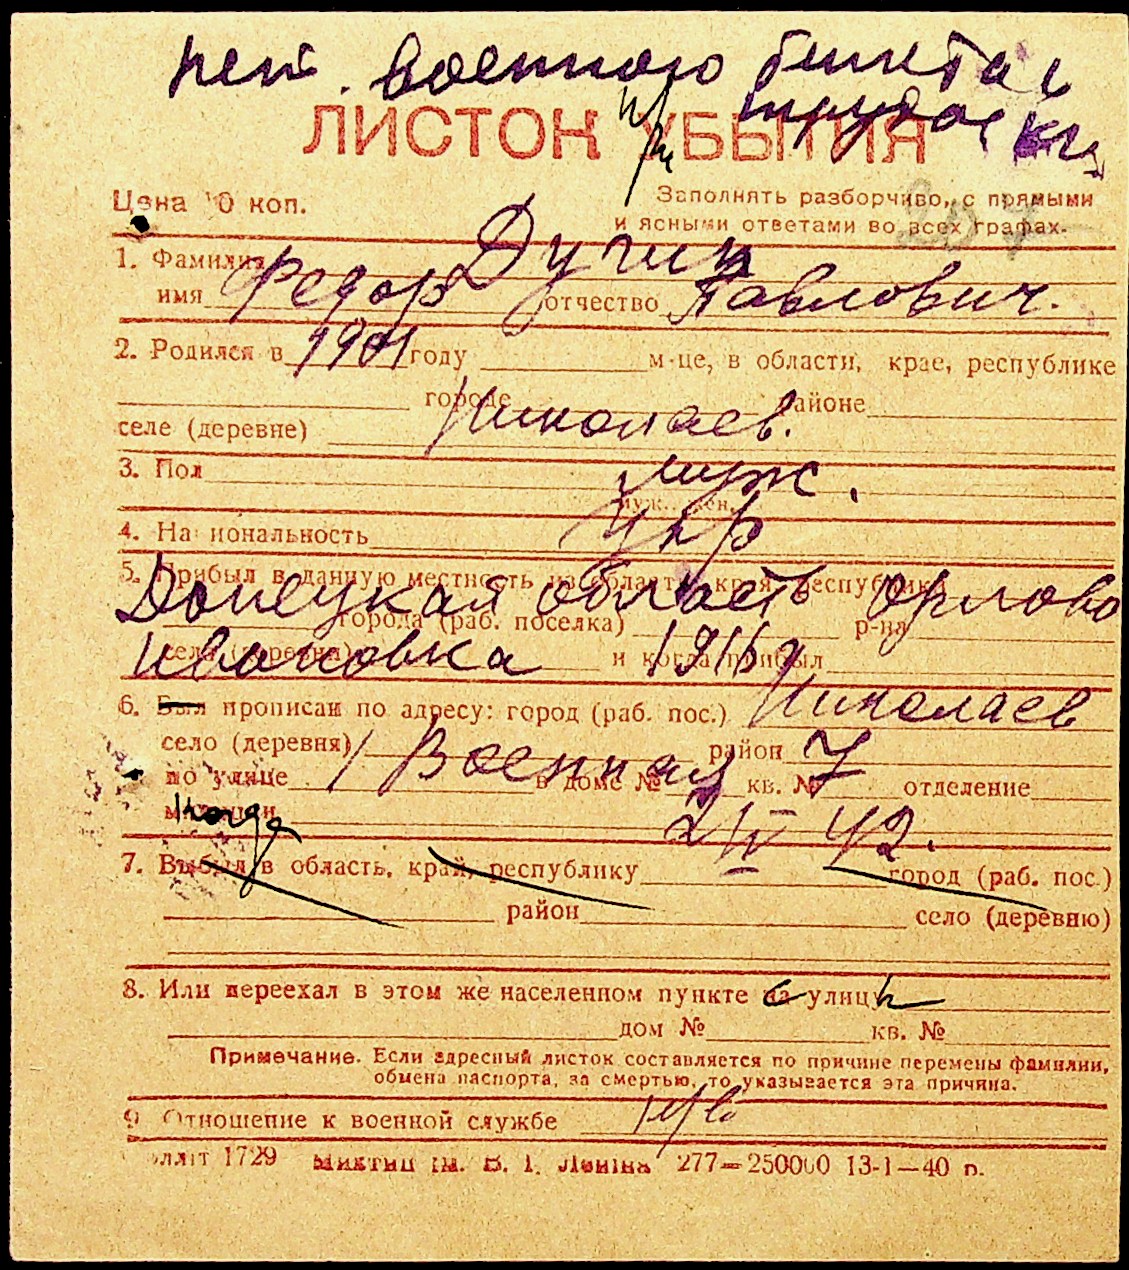 нет. военного билета и
трудов кн
ЛИСТОК УБЫТИЯ
Цена 10 коп.
Заполнять разборчиво, с прямыми
и ясными ответами во всех графах.
1. Фамилия Дугин
имя Федор отчество Павлович.
2. Родился в 1901 году м-це, в области, крае, республике
городе Николаев. районе
селе (деревне)
3. Пол муж.
муж., жен.
4. Национальность укр
5. Прибыл в данную местность из области, края, республики
Донецкая область Орлово
города (раб. поселка) р-на
села (деревни) Ивановка и когда прибыл 1916 г
6. Был прописан по адресу: город (раб. пос.) Николаев
село (деревня) район
по улице 1 Военная в доме № 7 кв. № отделение
милиции когда 2/IV 42.
7. Выбыл в область, край, республику город (раб. пос.)
район село (деревню)
8. Или переехал в этом же населенном пункте на улицу
дом № кв. №
Примечание. Если адресный листок составляется по причине перемены фамилии,
обмена паспорта, за смертью, то указывается эта причина.
9 Отношение к военной службе
1729 ім. В. І. Леніна 277—250000 13-1—40 р.